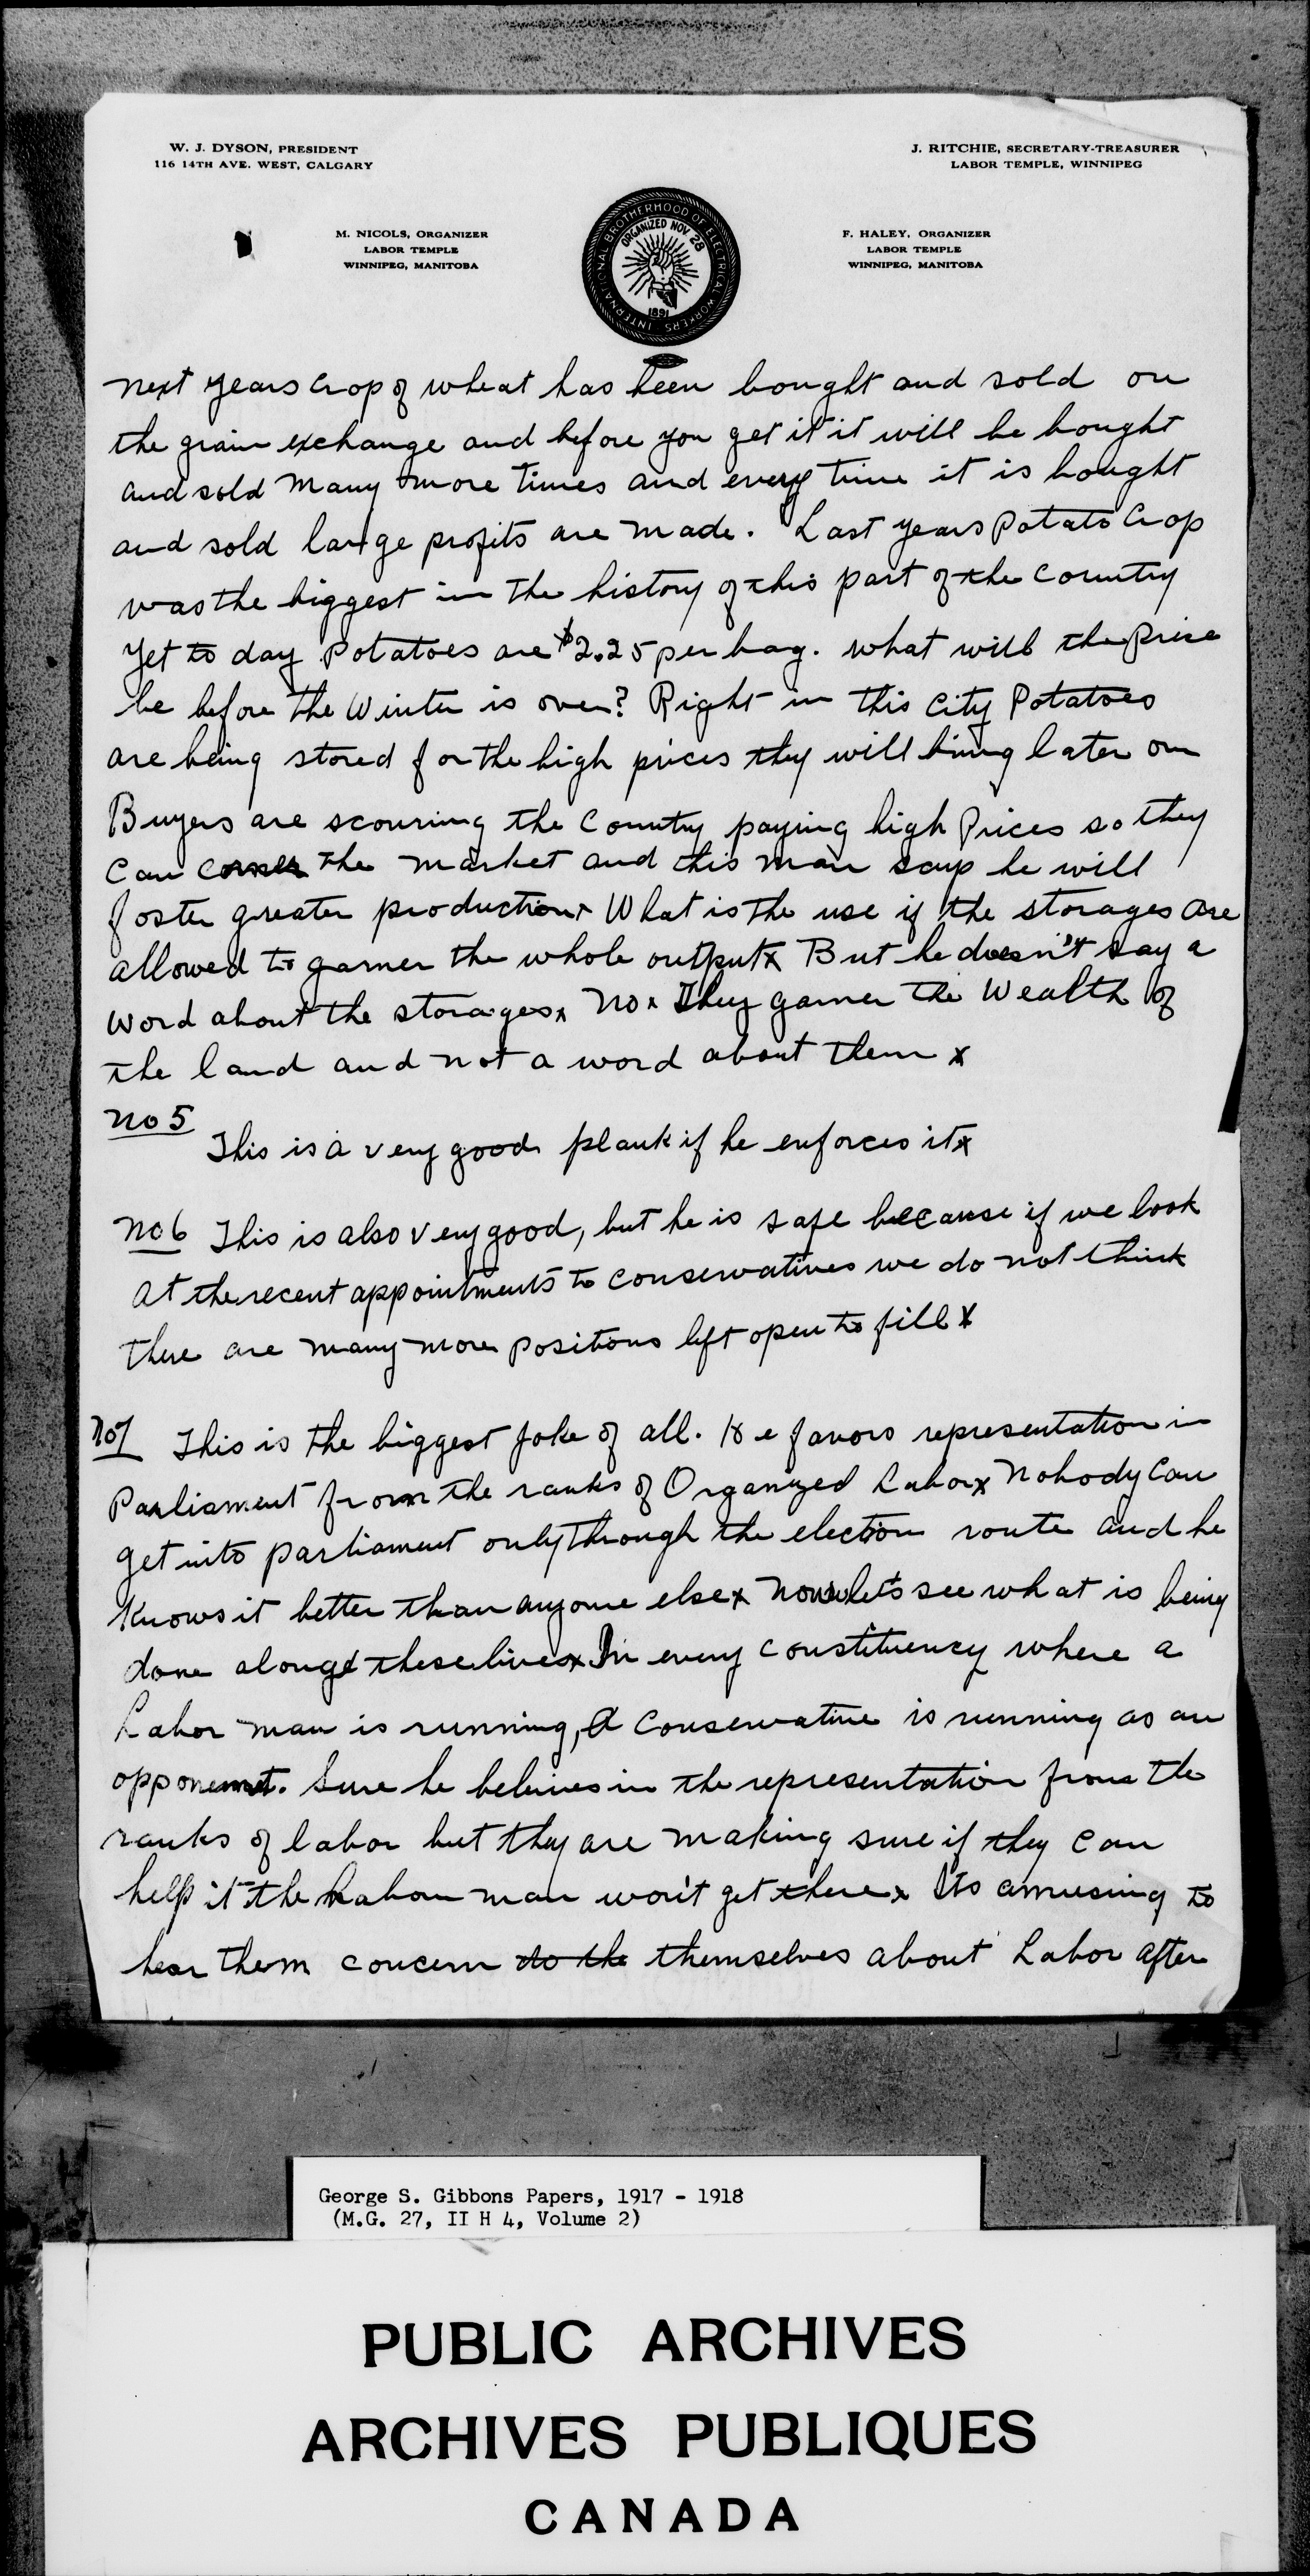 W. J. DYSON, PRESIDENT
116 14TH AVE. WEST, CALGARY
J. RITCHIE, SECRETARY-TREASURER
LABOR TEMPLE, WINNIPEG
M. NICOLS, ORGANIZER
LABOR TEMPLE
WINNIPEG, MANITOBA
INTERNATIONAL BROTHERHOOD OF ELECTRICAL WORKERS
ORGANIZED NOV. 28
1891
F. HALEY, ORGANIZER
LABOR TEMPLE
WINNIPEG, MANITOBA
next years crop of wheat has been bought and sold on
the grain exchange and before you get it it will be bought
and sold many more times and every time it is bought
and sold large profits are made. Last years potato crop
was the biggest in the history of this part of the country
yet to day potatoes are $2.25 per bag. what will the price
be before the winter is over? Right in this city Potatoes
are being stored for the high prices they will bring later on
Buyers are scouring the country paying high prices so they
can corner the market and this man says he will
foster greater production x What is the use if the storages are
allowed to garner the whole output x But he doesn't say a
word about the storages x no x They garner the wealth of
the land and not a word about them x
no 5
This is a very good plank if he enforces it x
no 6 This is also very good, but he is safe because if we look
at the recent appointments to conservatives we do not think
there are many more positions left open to fill x
no 7 This is the biggest joke of all. He favors representation in
Parliament from the ranks of Organized Labor x nobody can
get into parliament only through the election route and he
knows it better than anyone else x now lets see what is being
done along these lines x In every constituency where a
Labor man is running, a conservative is running as an
opponent. Sure he believes in the representation from the
ranks of labor but they are making sure if they can
help it the Labour man won't get there x Its amusing to
hear them concern do the themselves about Labor after
George S. Gibbons Papers, 1917 - 1918
(M.G. 27, II H 4, Volume 2)
PUBLIC ARCHIVES
ARCHIVES PUBLIQUES
CANADA